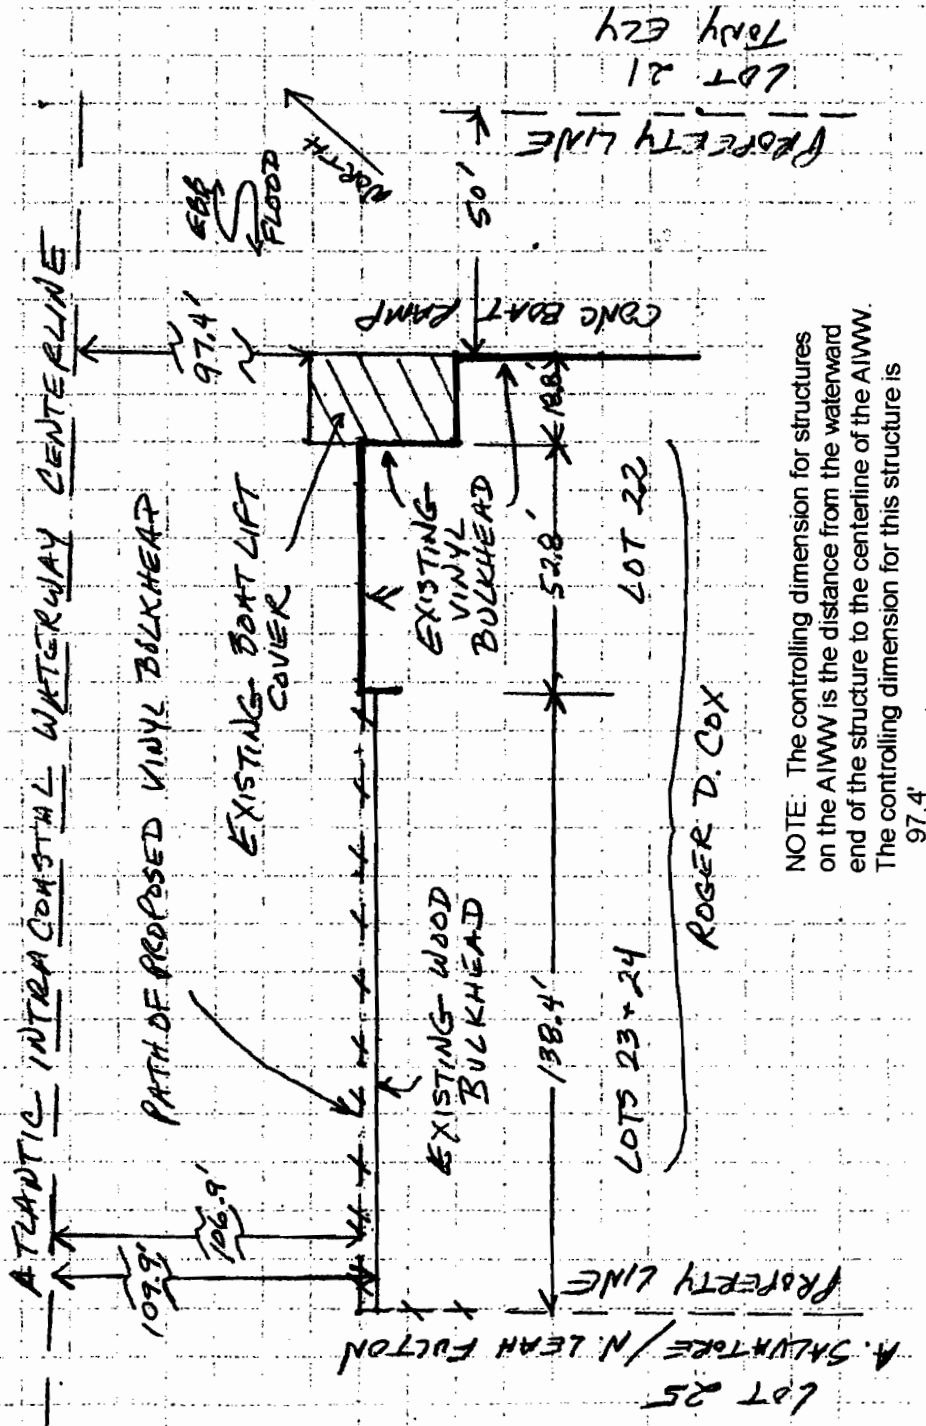 ATLANTIC INTRACOASTAL WATERWAY CENTERLINE
109.9'
106.9'
97.4'
PATH OF PROPOSED VINYL BULKHEAD
EBB
FLOOD
NORTH
EXISTING BOAT LIFT
COVER
EXISTING WOOD
BULKHEAD
EXISTING
VINYL
BULKHEAD
CONC BOAT
RAMP
50'
138.4'
52.8'
18.8'
LOTS 23 + 24
LOT 22
ROGER D. COX
LOT 25
A. SALVATORE / N. LEAH FULTON
PROPERTY LINE
PROPERTY LINE
LOT 21
TONY ELY
NOTE: The controlling dimension for structures
on the AIWW is the distance from the waterward
end of the structure to the centerline of the AIWW.
The controlling dimension for this structure is
97.4'